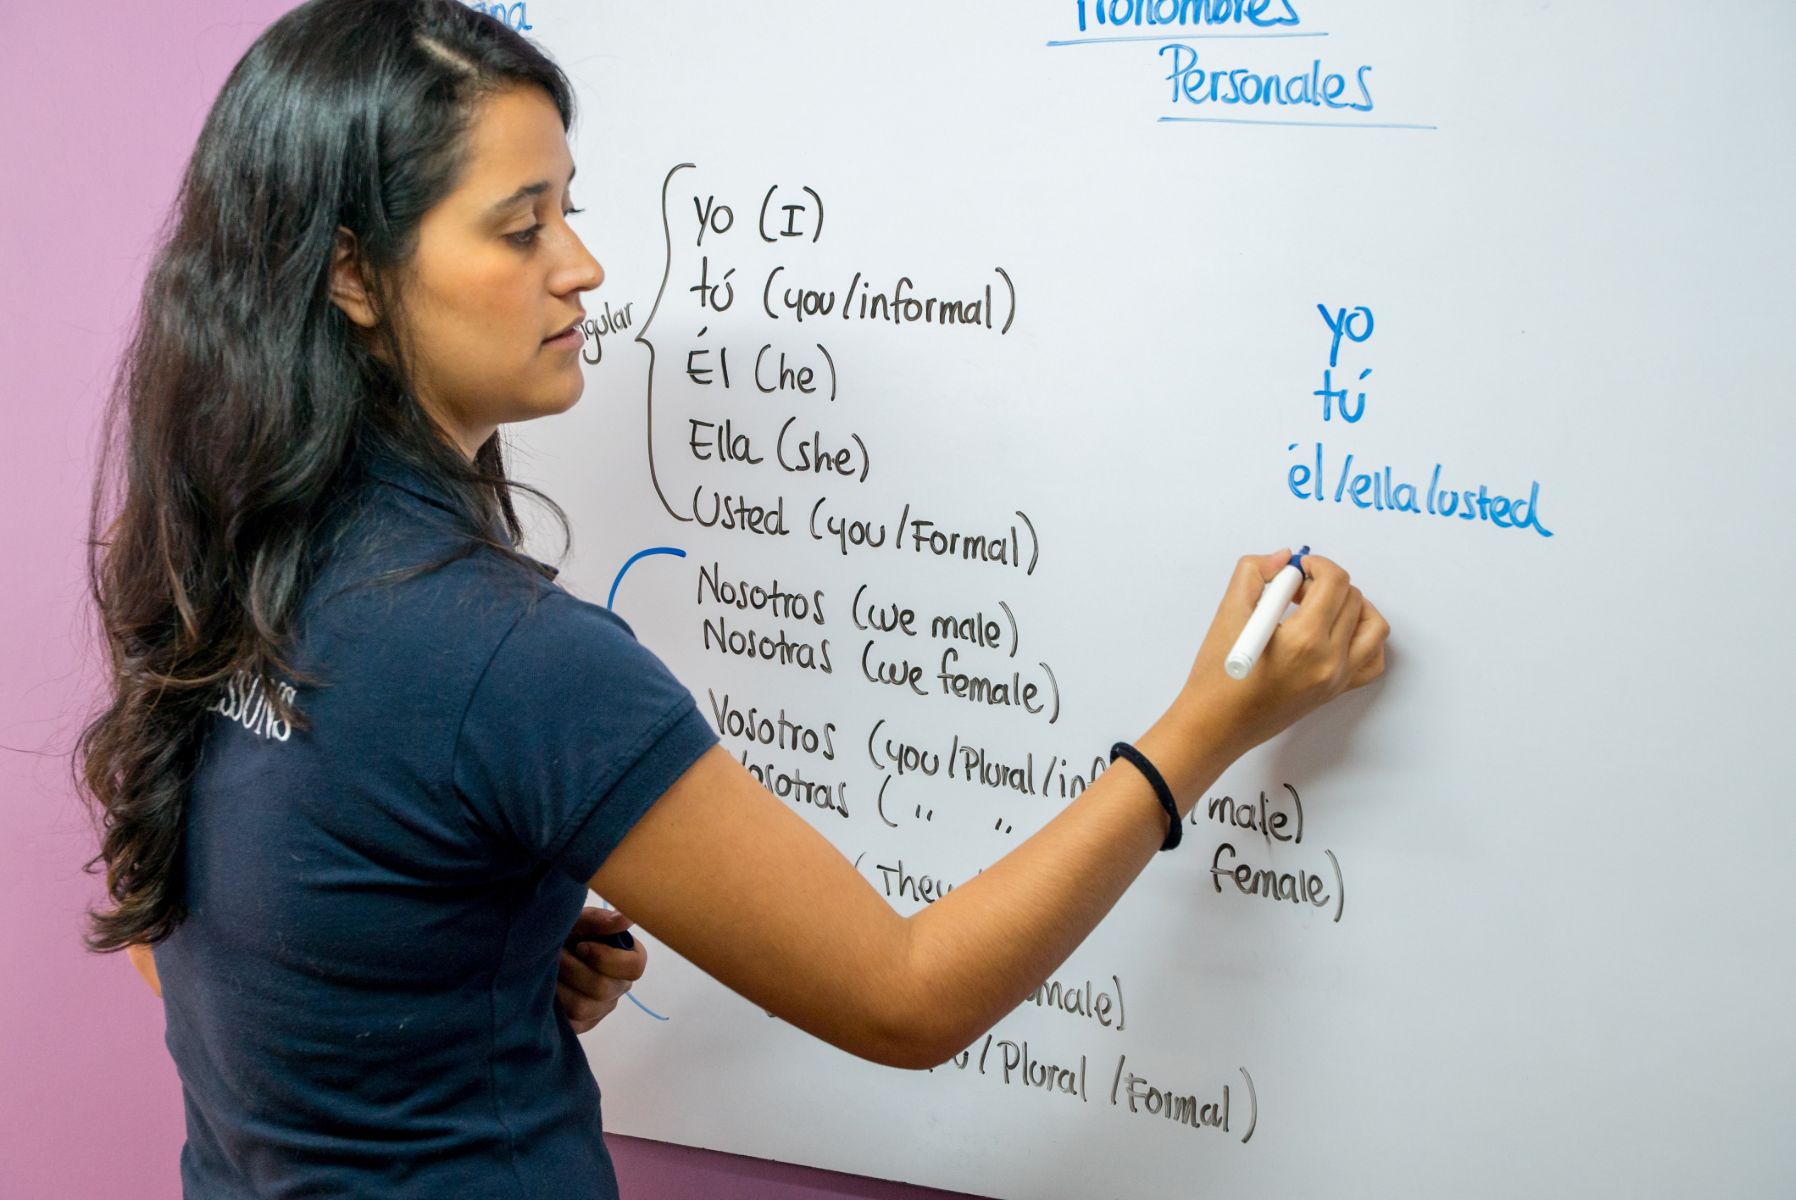 Pronombres
Personales
yo (I)
tú (you/informal)
Él (he)
Ella (she)
Usted (you/Formal)
Nosotros (we male)
Nosotras (we female)
Vosotros (you/Plural/inf /male)
(" " female)
(They
male)
/Plural/Formal)
yo
tú
él/ella/usted